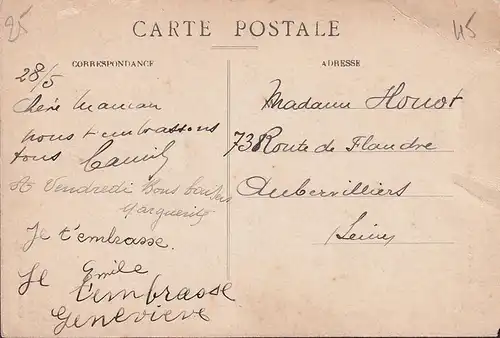 25
45
CARTE POSTALE
CORRESPONDANCE
28/5
Chère Maman
nous t'embrassons
tous Camil
A Vendredi Bons baisers
Marguerite
Je t'embrasse.
Emile
Je t'embrasse
Geneviève
ADRESSE
Madame Houot
73 Route de Flandre
Aubervilliers
Seine